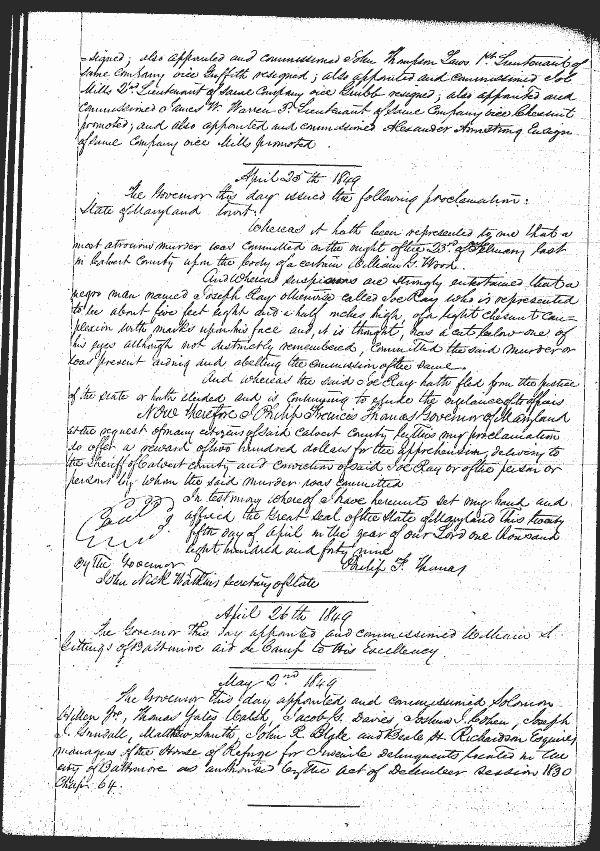 =signed; also appointed and commissioned John Thompson Laws 1st Lieutenant of
same company vice Griffith resigned; also appointed and commissioned
Mills 2nd Lieutenant of same Company vice resigned; also appointed and
commissioned James W. Warren 1st Lieutenant of same Company vice Chesnut
promoted; and also appointed and commissioned Alexander Armstrong Ensign
of same Company vice Mills promoted.
April 25th 1849
The Governor this day issued the following proclamation:
State of Maryland to wit:
Whereas it hath been represented to me that a
most atrocious murder was committed on the night of the 23d of February last
in Calvert County upon the body of a certain William G. Wood.
And Whereas suspicions are strongly entertained that a
negro man named Joseph Ray otherwise called Joe Ray who is represented
to be about five feet eight and a half inches high, of a light chesnut com=
plexion with marks upon his face and it is thought, has a cut below one of
his eyes although not distinctly remembered, committed the said murder or
was present aiding and abetting the commission of the same.
And whereas the said Joe Ray hath fled from the justice
of the State or hath eluded and is continuing to elude the vigilance of its officers
Now Therefore I Philip Francis Thomas Governor of Maryland
at the request of many citizens of said Calvert County, by this my proclamation
do offer a reward of two hundred dollars for the apprehension, delivery to
the Sheriff of Calvert County and conviction of said Joe Ray or of the person or
persons by whom the said murder was committed
In testimony whereof I have hereunto set my hand and
affixed the Great Seal of the State of Maryland this twenty
fifth day of April in the year of our Lord one thousand
eight hundred and forty nine
By the Governor
Philip F. Thomas
John Nick Watkins Secretary of State
April 26th 1849
The Governor this day appointed and commissioned William S.
Gittings of Baltimore aid de Camp to His Excellency
May 2nd 1849
The Governor this day appointed and commissioned Solomon
Hillen Jr, Thomas Yates Walsh, Jacob G. Davies, Joshua I. Cohen, Joseph
J. Matthew Smith, John R. and Beale H. Richardson Esquires
managers of the House of Refuge for Juvenile delinquents located in the
city of Baltimore as authorised by the Act of December session 1830
Chap. 64.